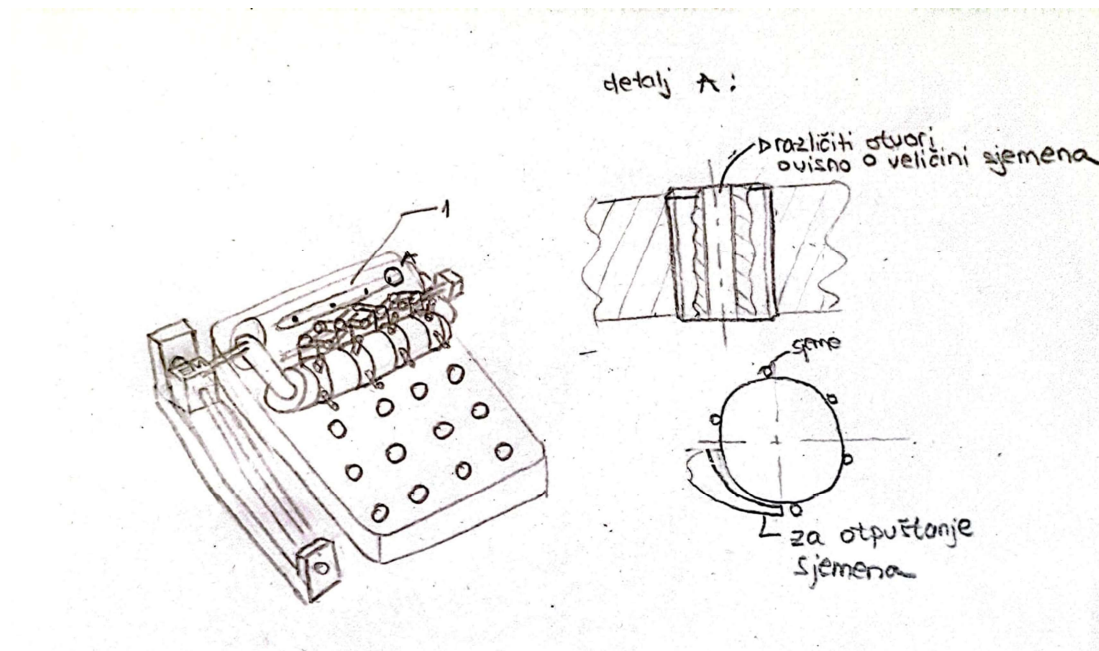 detalj A:
različiti otvori
ovisno o veličini sjemena
1
A
sjeme
za otpuštanje
sjemena